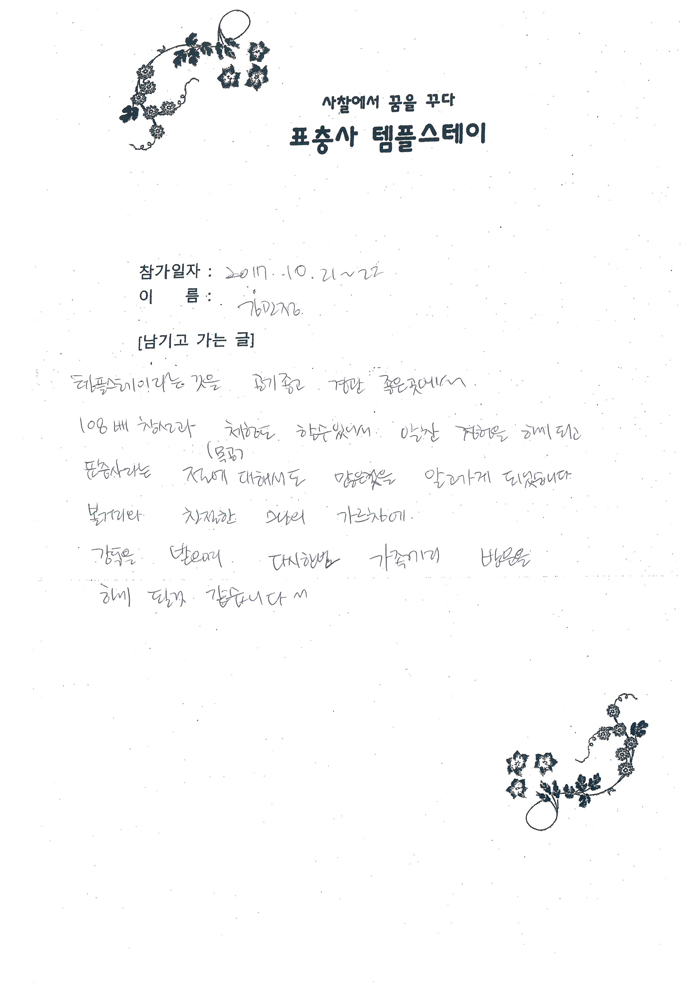 사찰에서 꿈을 꾸다
표충사 템플스테이
참가일자 : 2017. 10. 21~22
이 름 :
[남기고 가는 글]
템플스테이라는 것을 공기좋고 경관 좋은곳에서
108배 참선과 체험도 할수있어서 알찬 경험을 하게되고
표충사라는 절에 대해서도 많은것을 알고가게 되었습니다
볼거리와 친절한 스님의 가르침에
감동을 받으며 다시한번 가족끼리 방문을
하게 될것 같습니다 ~